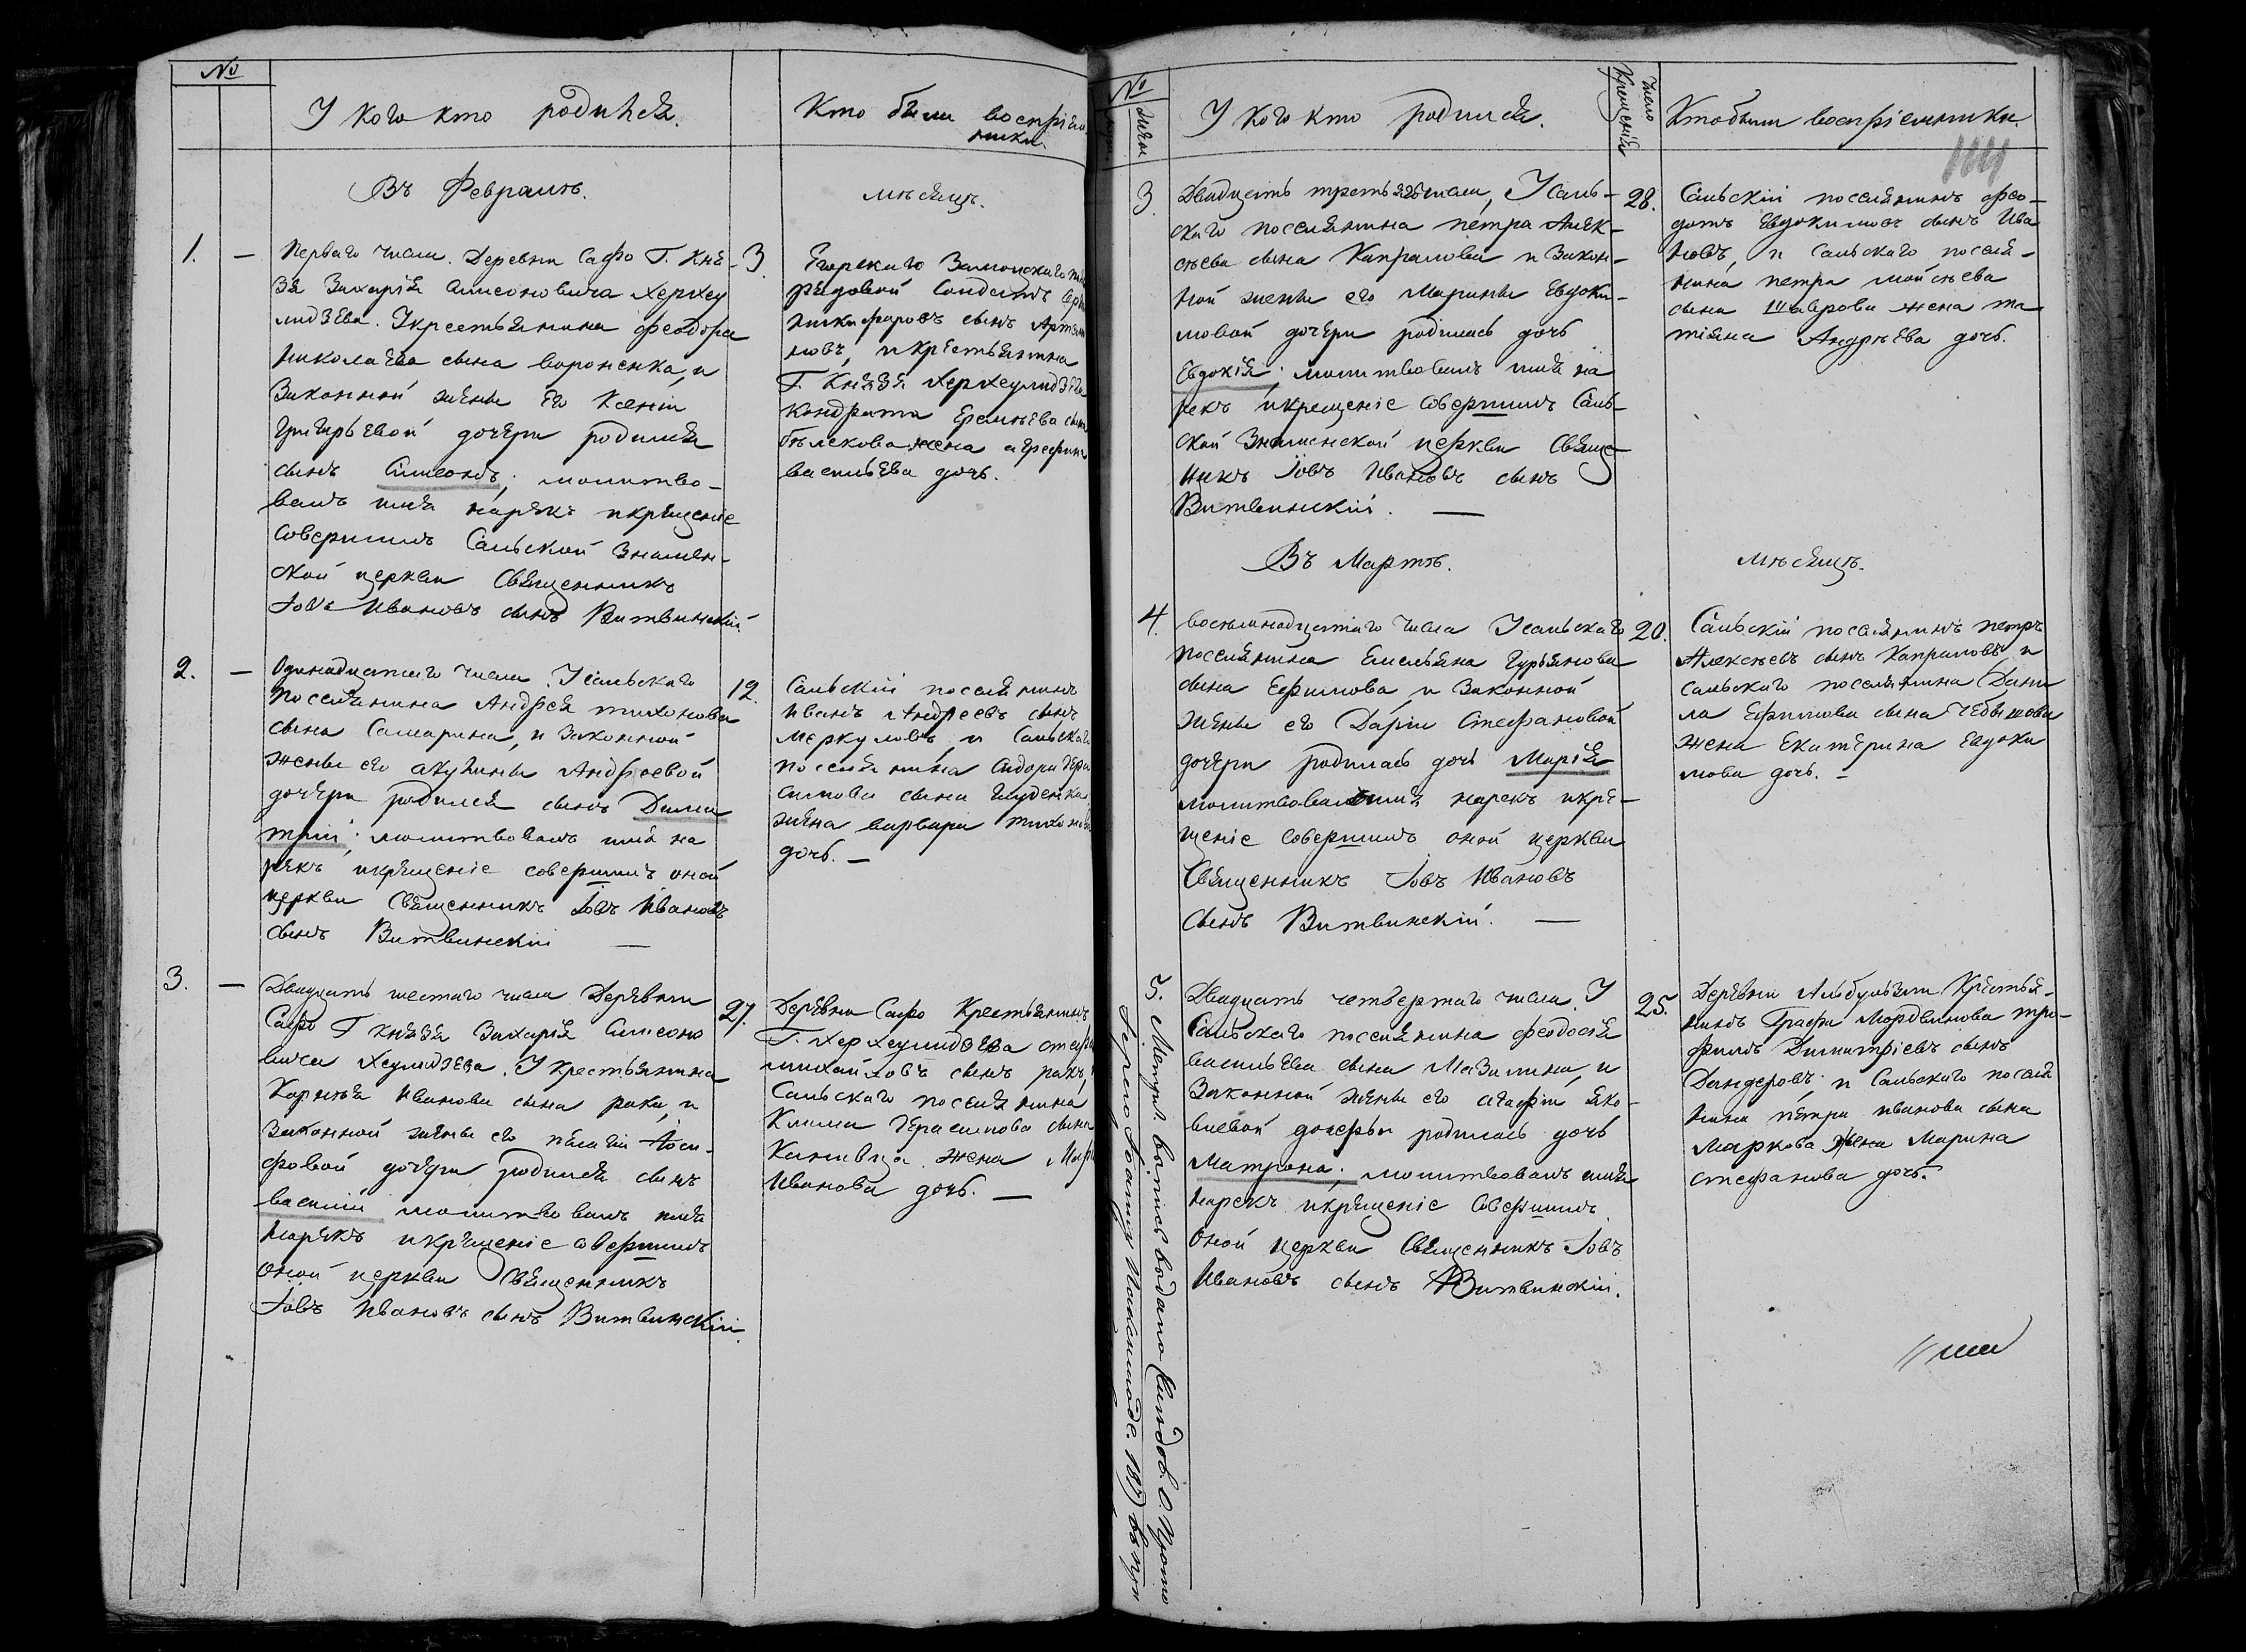 №
У кого кто родился.
Кто были воспріем
ники.
Въ Февралѣ.
мѣсяцѣ.
1. —
Перваго числа. Деревни Сафо Г. Кня-
зя Захарія Симеоновича Херхеу
лидзева. У крестьянина Феодора
Николаева сына Вороненка, и
Законной жены Его Ксеніи
Григорьевой дочери родился
сынъ Симеонъ; молитво-
валъ имя нарекъ и крещеніе
совершилъ Сальской Знамен-
ской церкви Священникъ
Іовъ Ивановъ сынъ Витвинскій.
3.
Егорскаго Замонскаго
рядовой Солдатъ
Никифоровъ сынъ
новъ, и крестьянина
Г. Князя Херхеулидзева
Кондрата Еремѣева сына
Бѣлскова жена Агрефина
васильева дочь.
2. —
Одинадцатаго числа. У Сальскаго
поселянина Андрея Тихонова
сына Самарина, и Законной
жены его Акулины Андреевой
дочери родился сынъ Дими
трій; молитвовалъ имя на
рекъ и крещеніе совершилъ оной
церкви Священникъ Іовъ Ивановъ
сынъ Витвинскій —
12.
Сальскій поселянинъ
Иванъ Андреевъ сынъ
Меркуловъ, и Сальскаго
поселянина Сидора Гера
симова сына
жена варвара Тихонова
дочь. —
3. —
Двадцать шестаго числа Деревни
Сафо Г Князя Захарія Симеоно
вича Хеулидзева. У крестьянина
Корнѣя Иванова сына рака, и
Законной жены его Пелагіи Іоси-
фовой дочери родился сынъ
василій молитвовалъ имя
нарекъ и крещеніе совершилъ
оной церкви Священникъ
Іовъ Ивановъ сынъ Витвинскій.
27.
Деревни Сафо Крестьянинъ
Г. Херхеулидзева
михайловъ сынъ ракъ,
Сальскаго поселянина
Клима Герасимова сына
жена
Иванова дочь. —
№
У кого кто родился.
Число
Крещенія
Кто были воспріемники.
3.
Двадцать третьяго числа, У Саль-
скаго поселянина петра Алек-
сѣева сына Капралова и Закон-
ной жены его Марины Евдоки-
мовой дочери родилась дочь
Евдокія; молитвовалъ имя на
рекъ и крещеніе совершилъ Саль-
ской Знаменской церкви Священ-
никъ Іовъ Ивановъ сынъ
Витвинскій. —
28.
Сальскій поселянинъ Фео-
дотъ Евдокимовъ сынъ Ива
новъ, и Сальскаго поселя-
нина петра мойсѣева
сына Шаврова жена Та
тіяна Андрѣева дочь.
Въ Мартѣ.
мѣсяцѣ.
4.
восемнадцатаго числа У Сальскаго
поселянина Емельяна Гурьянова
сына Ефимова, и Законной
жены его Даріи Стефановой
дочери родилась дочь Марія
молитвовалъ имя нарекъ и кре-
щеніе совершилъ оной церкви
Священникъ Іовъ Ивановъ
сынъ Витвинскій. —
20.
Сальскій поселянинъ петръ
Алексѣевъ сынъ Капраловъ и
сальскаго поселянина Дани
ла Ефимова сына
жена Екатерина Евдоки
мова дочь. —
5.
Двадцать четвертаго числа. У
Сальскаго поселянина Феодосія
васильева сына Мазилина, и
Законной жены его Агафіи Яко-
влевой дочери родилась дочь
Матрона; молитвовалъ имя
нарекъ и крещеніе совершилъ
Оной церкви Священникъ Іовъ
Ивановъ сынъ Витвинскій.
25.
Деревни Крестья-
нинъ Графа Мордвинова Тро-
фимъ Димитріевъ сынъ
и Сальскаго поселя
нина петра иванова сына
Маркова жена Марина
стефанова дочь.